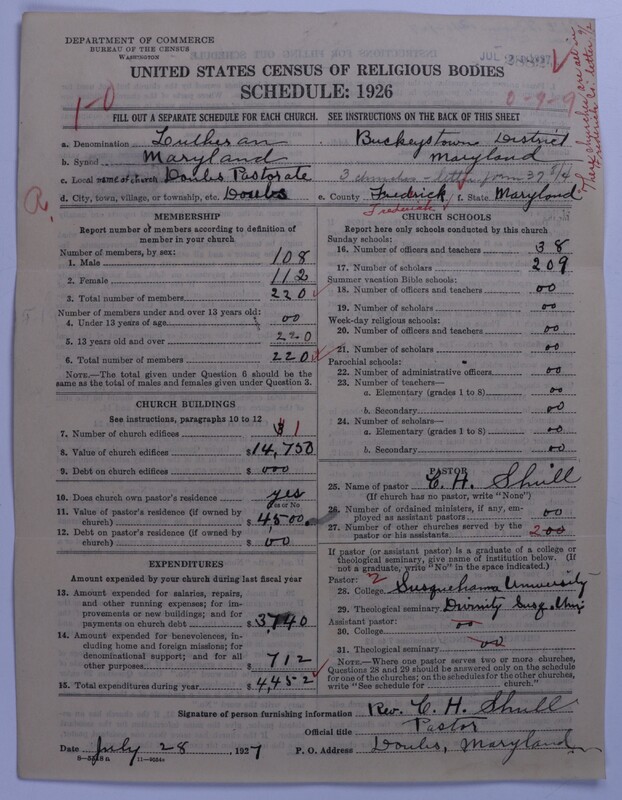 DEPARTMENT OF COMMERCE
BUREAU OF THE CENSUS
WASHINGTON
UNITED STATES CENSUS OF RELIGIOUS BODIES
SCHEDULE: 1926
1-0
0-9-9
These churches are all in Frederick Co
FILL OUT A SEPARATE SCHEDULE FOR EACH CHURCH. SEE INSTRUCTIONS ON THE BACK OF THIS SHEET
a. Denomination Lutheran Buckeystown District
b. Synod Maryland Maryland
c. Local name of church Doubs Pastorate 3 churches - letter form 37 8/4
d. City, town, village, or township, etc. Doubs e. County Fredrick f. State Maryland
Frederick
R.
MEMBERSHIP
Report number of members according to definition of member in your church
Number of members, by sex:
1. Male 108
2. Female 112
3. Total number of members 220
Number of members under and over 13 years old:
4. Under 13 years of age 00
5. 13 years old and over 220
6. Total number of members 220
NOTE.—The total given under Question 6 should be the same as the total of males and females given under Question 3.
CHURCH BUILDINGS
See instructions, paragraphs 10 to 12
7. Number of church edifices 1
8. Value of church edifices $14,750
9. Debt on church edifices $000
10. Does church own pastor's residence yes
Yes or No
11. Value of pastor's residence (if owned by church) $4500
12. Debt on pastor's residence (if owned by church) $00
EXPENDITURES
Amount expended by your church during last fiscal year
13. Amount expended for salaries, repairs, and other running expenses; for improvements or new buildings; and for payments on church debt $3,740
14. Amount expended for benevolences, including home and foreign missions; for denominational support; and for all other purposes $712
15. Total expenditures during year $4,452
CHURCH SCHOOLS
Report here only schools conducted by this church
Sunday schools:
16. Number of officers and teachers 38
17. Number of scholars 209
Summer vacation Bible schools:
18. Number of officers and teachers 00
19. Number of scholars 00
Week-day religious schools:
20. Number of officers and teachers 00
21. Number of scholars 00
Parochial schools:
22. Number of administrative officers 00
23. Number of teachers—
a. Elementary (grades 1 to 8) 00
b. Secondary 00
24. Number of scholars—
a. Elementary (grades 1 to 8) 00
b. Secondary 00
PASTOR
25. Name of pastor C. H. Shull
(If church has no pastor, write "None")
26. Number of ordained ministers, if any, employed as assistant pastors 00
27. Number of other churches served by the pastor or his assistants 2
If pastor (or assistant pastor) is a graduate of a college or theological seminary, give name of institution below. (If not a graduate, write "No" in the space indicated.)
Pastor: 2
28. College Susquehanna University
29. Theological seminary Divinity Susq. Univ.
Assistant pastor:
30. College 00
31. Theological seminary 00
NOTE.—Where one pastor serves two or more churches, Questions 28 and 29 should be answered only on the schedule for one of the churches; on the schedules for the other churches, write "See schedule for church.
Signature of person furnishing information Rev. C. H. Shull
Official title Pastor
Date July 28, 1927 P. O. Address Doubs, Maryland